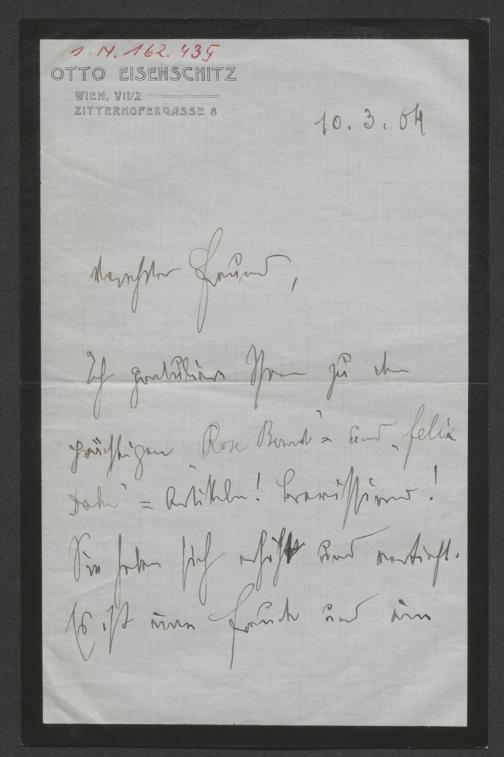 I. N. 162.435
OTTO EISENSCHITZ
WIEN, VII/2
ZITTERHOFERGASSE 8
10. 3. 04
Verehrter Freund,
Ich gratuliere Ihnen zu den
prächtigen „Rose Bernd"= und „Felix
Dahn"= Artikeln! Bravissimo!
Sie haben sich erhöht und vertieft.
Es ist eine Freude und ein